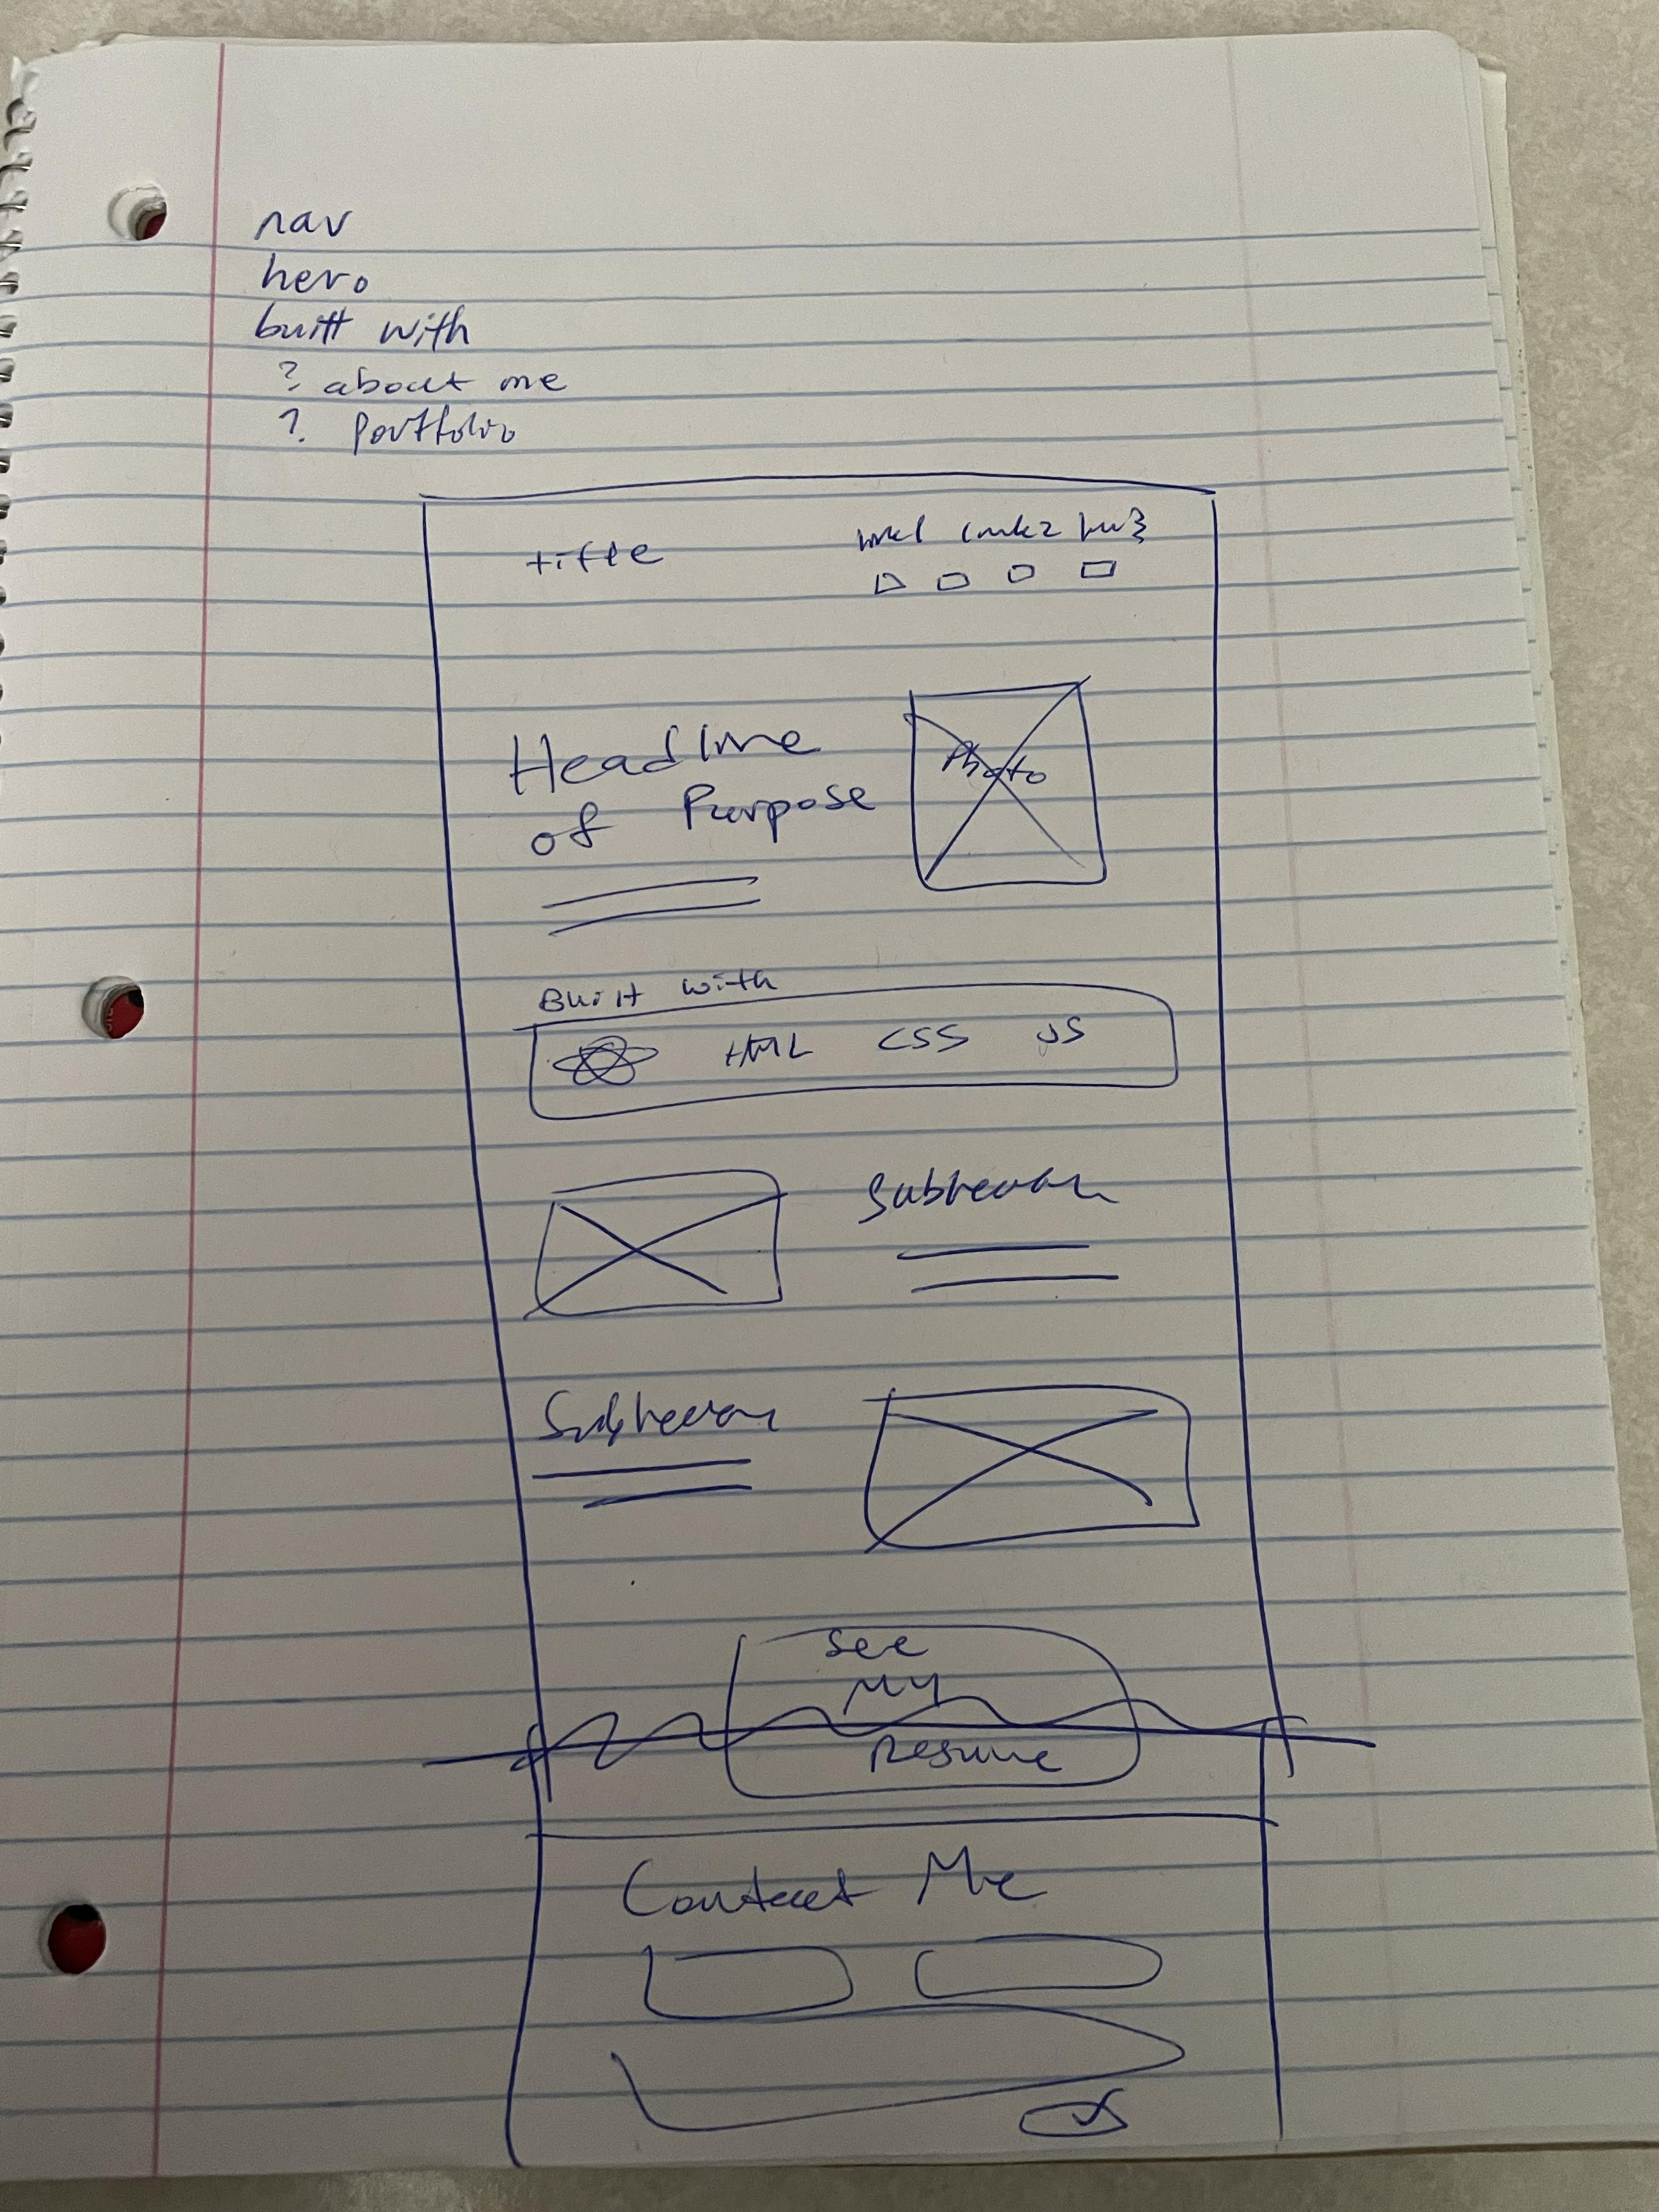 nav
hero
built with
? about me
? portfolio
title
link1 link2 link3
Headline
of Purpose
Photo
Built with
HTML CSS JS
See
My
Resume
Contact Me